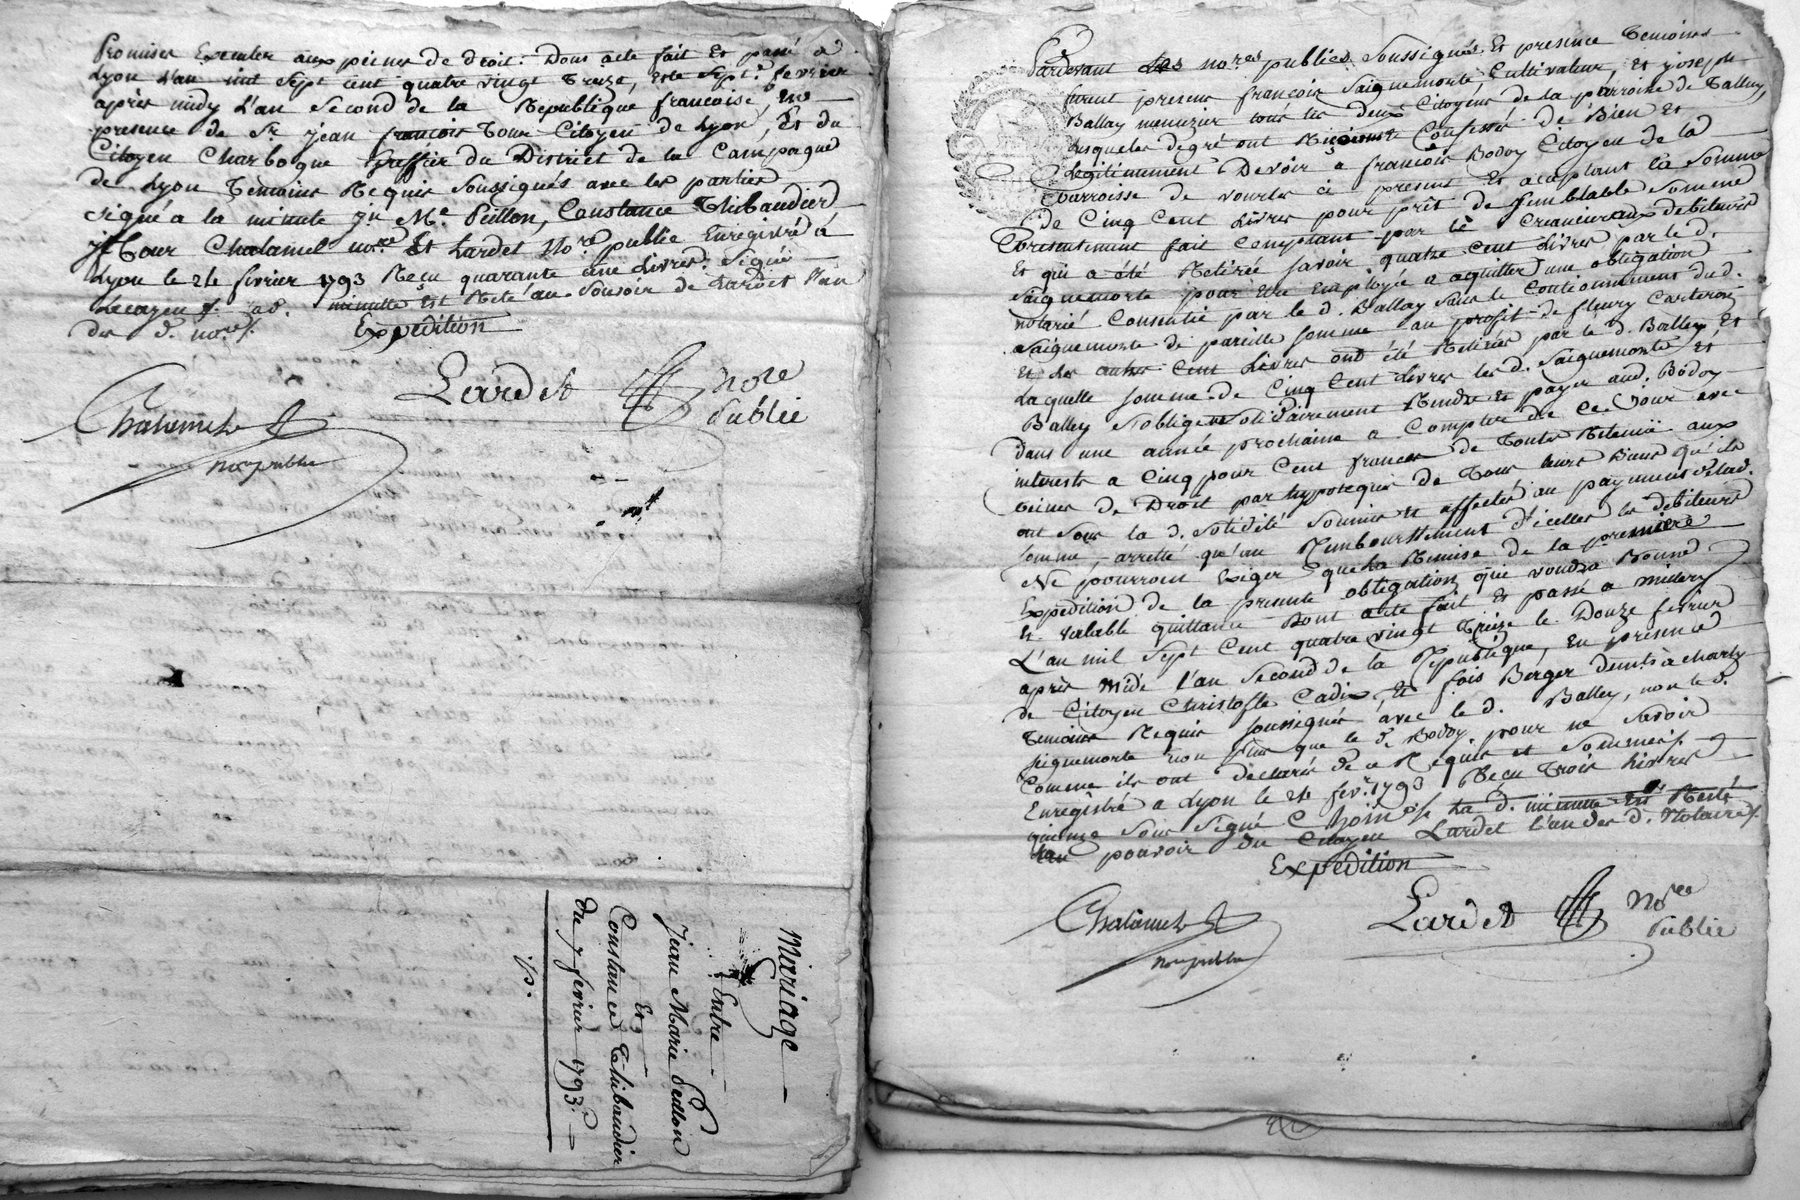 Promises Executer aux peines de droit. Dont acte fait Et passé a
Lyon L'an mil Sept cent quatre vingt Treize, Et le Sept.e fevrier
après midy L'an Second de la République francoise, En
presence de Sr jean françois Tour Citoyen de Lyon, Et du
Citoyen Charbogne Greffier du District de la Campagne
de Lyon Temoins Requis Soussignés avec les parties
signé a la minute jn Me Peillon, Constance Thibaudier
jf Tour Chalamel nore Et Lardet Nore public Enregistré à
Lyon le 21e fevrier 1793 Reçu quarante une Livres. Signé
Lecazen ad. minutte Est Resté au Pouvoir de Lardet L'un
des d. nores
Expédition
Chalamel
nore public
Lardet nore
Public
Mariage
Entre
Jean Marie Peillon
Et
Constance Thibaudier
du 7 fevrier 1793.
Pardevant Les nores publics Soussignés Et presence Temoins
furent presens françois Saignemorte Cultivateur, Et joseph
Ballay menuizier tous les deux Citoyens de la parroisse de Talluy,
Lesquels de gré ont Reconnu Et Confessé de Bien Et
Legitimement Devoir a françois Bodoy Citoyen de la
Parroisse de vourles ci present Et acceptant la Somme
de Cinq Cent Livres pour prêt de semblable Somme
Presentement fait Comptant par le Créancier aux debiteurs
Et qui a été Retirée Savoir quatre Cent Livres par le d.
Saignemorte pour Etre Employée a aquitter une obligation
notarié Consentie par le d. Ballay Sous le Cautionnement du d.
Saignemorte de pareille somme au profit de fleury Carteron
Et Les autres Cent Livres ont été Retirées par le d. Ballay, Et
Laquelle somme de Cinq Cent Livres les d. Saignemorte Et
Balley s'obligent Solidairement Rendre Et payer aud. Bodoy
Dans une année prochaine a Compter de Ce Jour avec
interests a Cinq pour Cent francs de Toute Retenüe aux
peines de Droit par hypoteques de Tous leurs Biens qu'ils
ont Sous la d. Solidité Soumis Et affectés au payement de lad.
somme, arretté qu'au Remboursement d'icelles les debiteurs
Ne pourront Exiger que la Remise de la premiere
Expedition de la presente obligation qui vaudra Bonne
Et valable quittance Dont acte fait Et passé a millery
L'an mil Sept Cent quatre vingt Treize le Douze fevrier
après Midi l'an Second de la République, En presence
de Citoyen Christofle Cadix Et fois Berger demts à charly
Temoins Requis soussignés avec le d. Balley, non le d.
Seignemorte non plus que le d. Bodoy pour ne Savoir
Comme ils ont déclarés de ce Requis et Sommés
Enregistré a Lyon le 21e fevr. 1793 Reçu Trois Livres
quinze Sous Signé C join La d. minutte Est Resté
au pouvoir du Citoyen Lardet l'un des d. Notaires
Expédition
Chalamel
nore public
Lardet Nore
Public